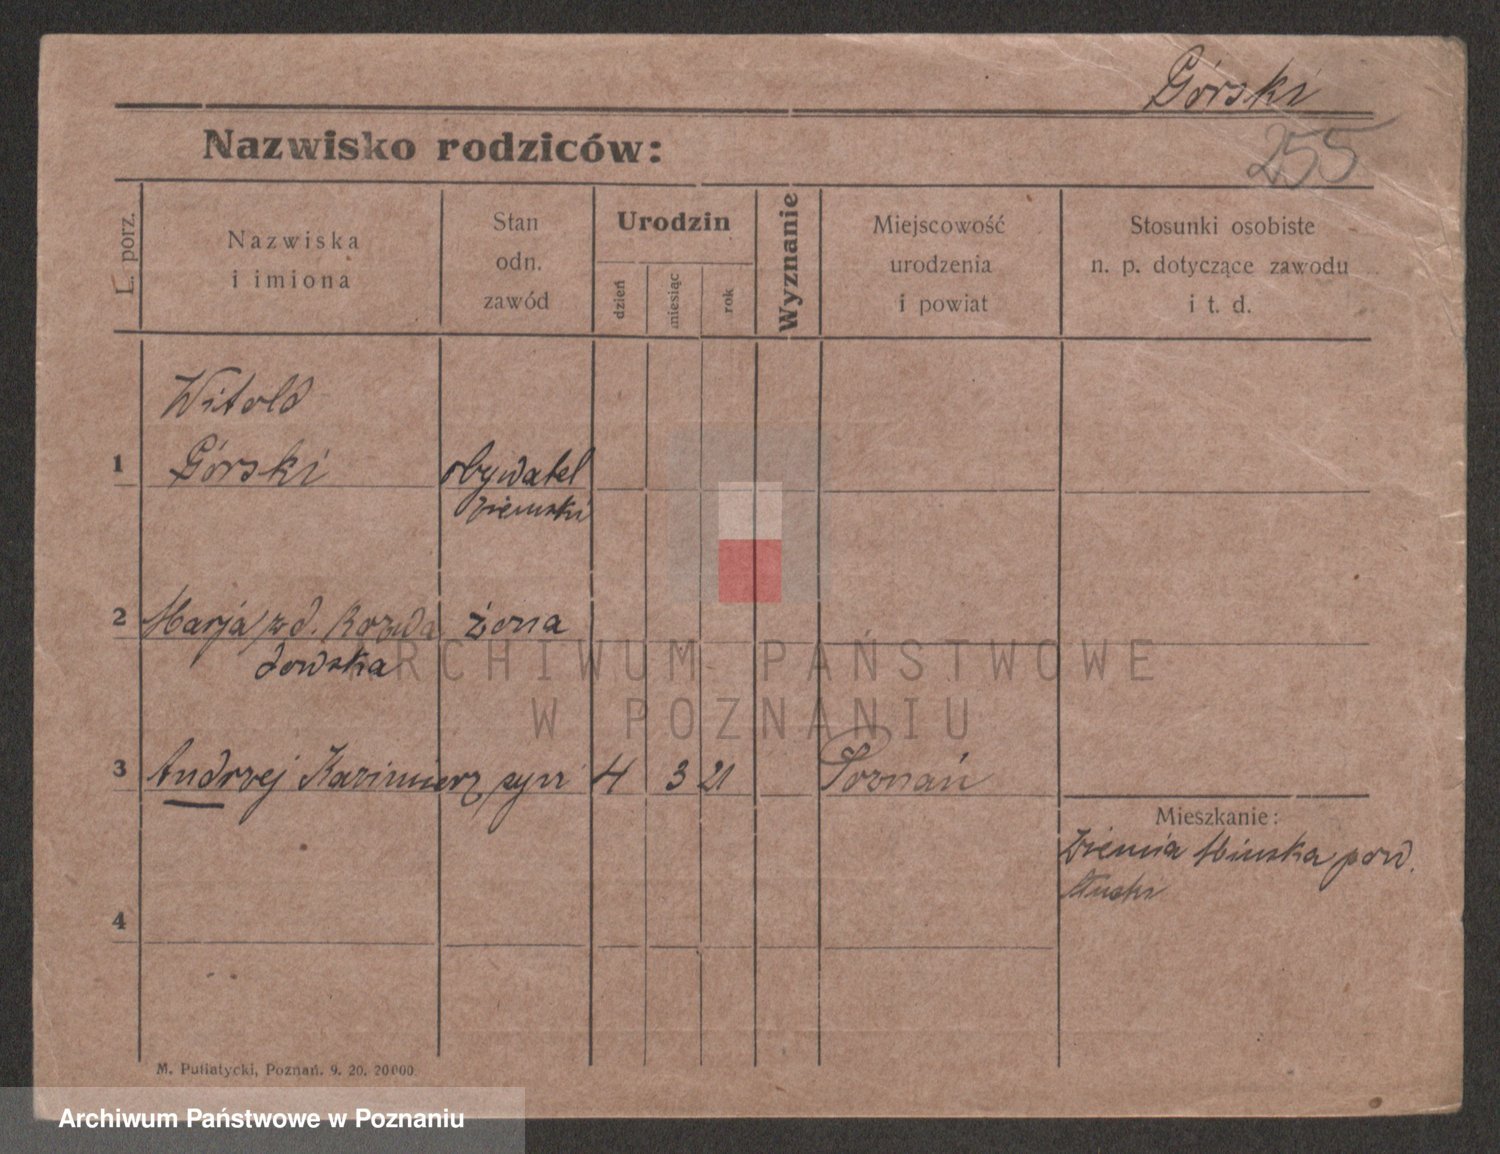 Górski
Nazwisko rodziców:
255
L. porz.
Nazwiska
i imiona
Stan
odn.
zawód
Urodzin
dzień
miesiąc
rok
Wyznanie
Miejscowość
urodzenia
i powiat
Stosunki osobiste
n. p. dotyczące zawodu
i t. d.
Witold
1 Górski obywatel
ziemski
2 Marja z d. Rozwa żona
dowska
ARCHIWUM PAŃSTWOWE
W POZNANIU
3 Andrzej Kazimierz syn 4 3 21 Poznań
Mieszkanie:
Ziemia Mińska pow.
4
M. Putiatycki, Poznań. 9. 20. 20000
Archiwum Państwowe w Poznaniu